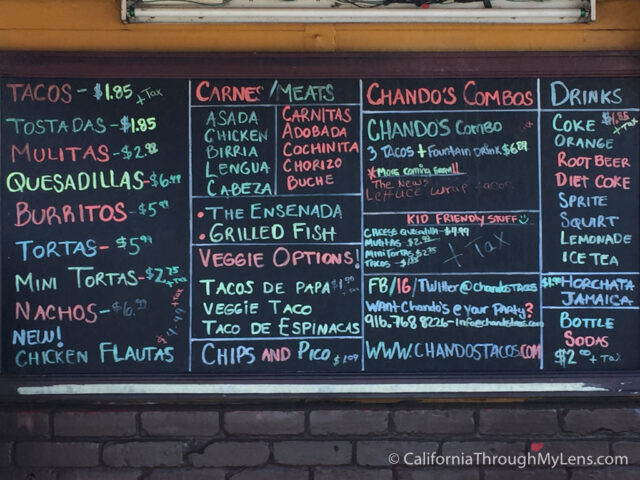 TACOS - $1.85 + Tax
TOSTADAS - $1.85
MULITAS - $2.
QUESADILLAS - $6.
BURRITOS - $5.
TORTAS - $5.
MINI TORTAS - $2.75 + tax
NACHOS - $6.99
NEW!
CHICKEN FLAUTAS
CARNES / MEATS
ASADA
CHICKEN
BIRRIA
LENGUA
CABEZA
CARNITAS
ADOBADA
COCHINITA
CHORIZO
BUCHE
• THE ENSENADA
• GRILLED FISH
VEGGIE OPTIONS!
TACOS DE PAPA
VEGGIE TACO
TACO DE ESPINACAS
CHIPS AND PICO
CHANDO'S COMBOS
CHANDO'S COMBO
3 TACOS + FOUNTAIN DRINK
*MORE COMING SOON!!
THE NEWS
LETTUCE WRAP TACOS
KID FRIENDLY STUFF
CHEESE QUESADILLA - $4.99
MULITAS
MINI TORTAS $2.75
TACOS -
+ TAX
FB/IG/TWITTER @CHANDOSTACOS
WANT CHANDO'S @ YOUR PARTY?
916.768.8226 - INFO@CHANDOSTACOS.COM
WWW.CHANDOSTACOS.COM
DRINKS
COKE $1.85 + TAX
ORANGE
ROOT BEER
DIET COKE
SPRITE
SQUIRT
LEMONADE
ICE TEA
HORCHATA
JAMAICA
BOTTLE
SODAS
$2.00 + TAX
© CaliforniaThroughMyLens.com